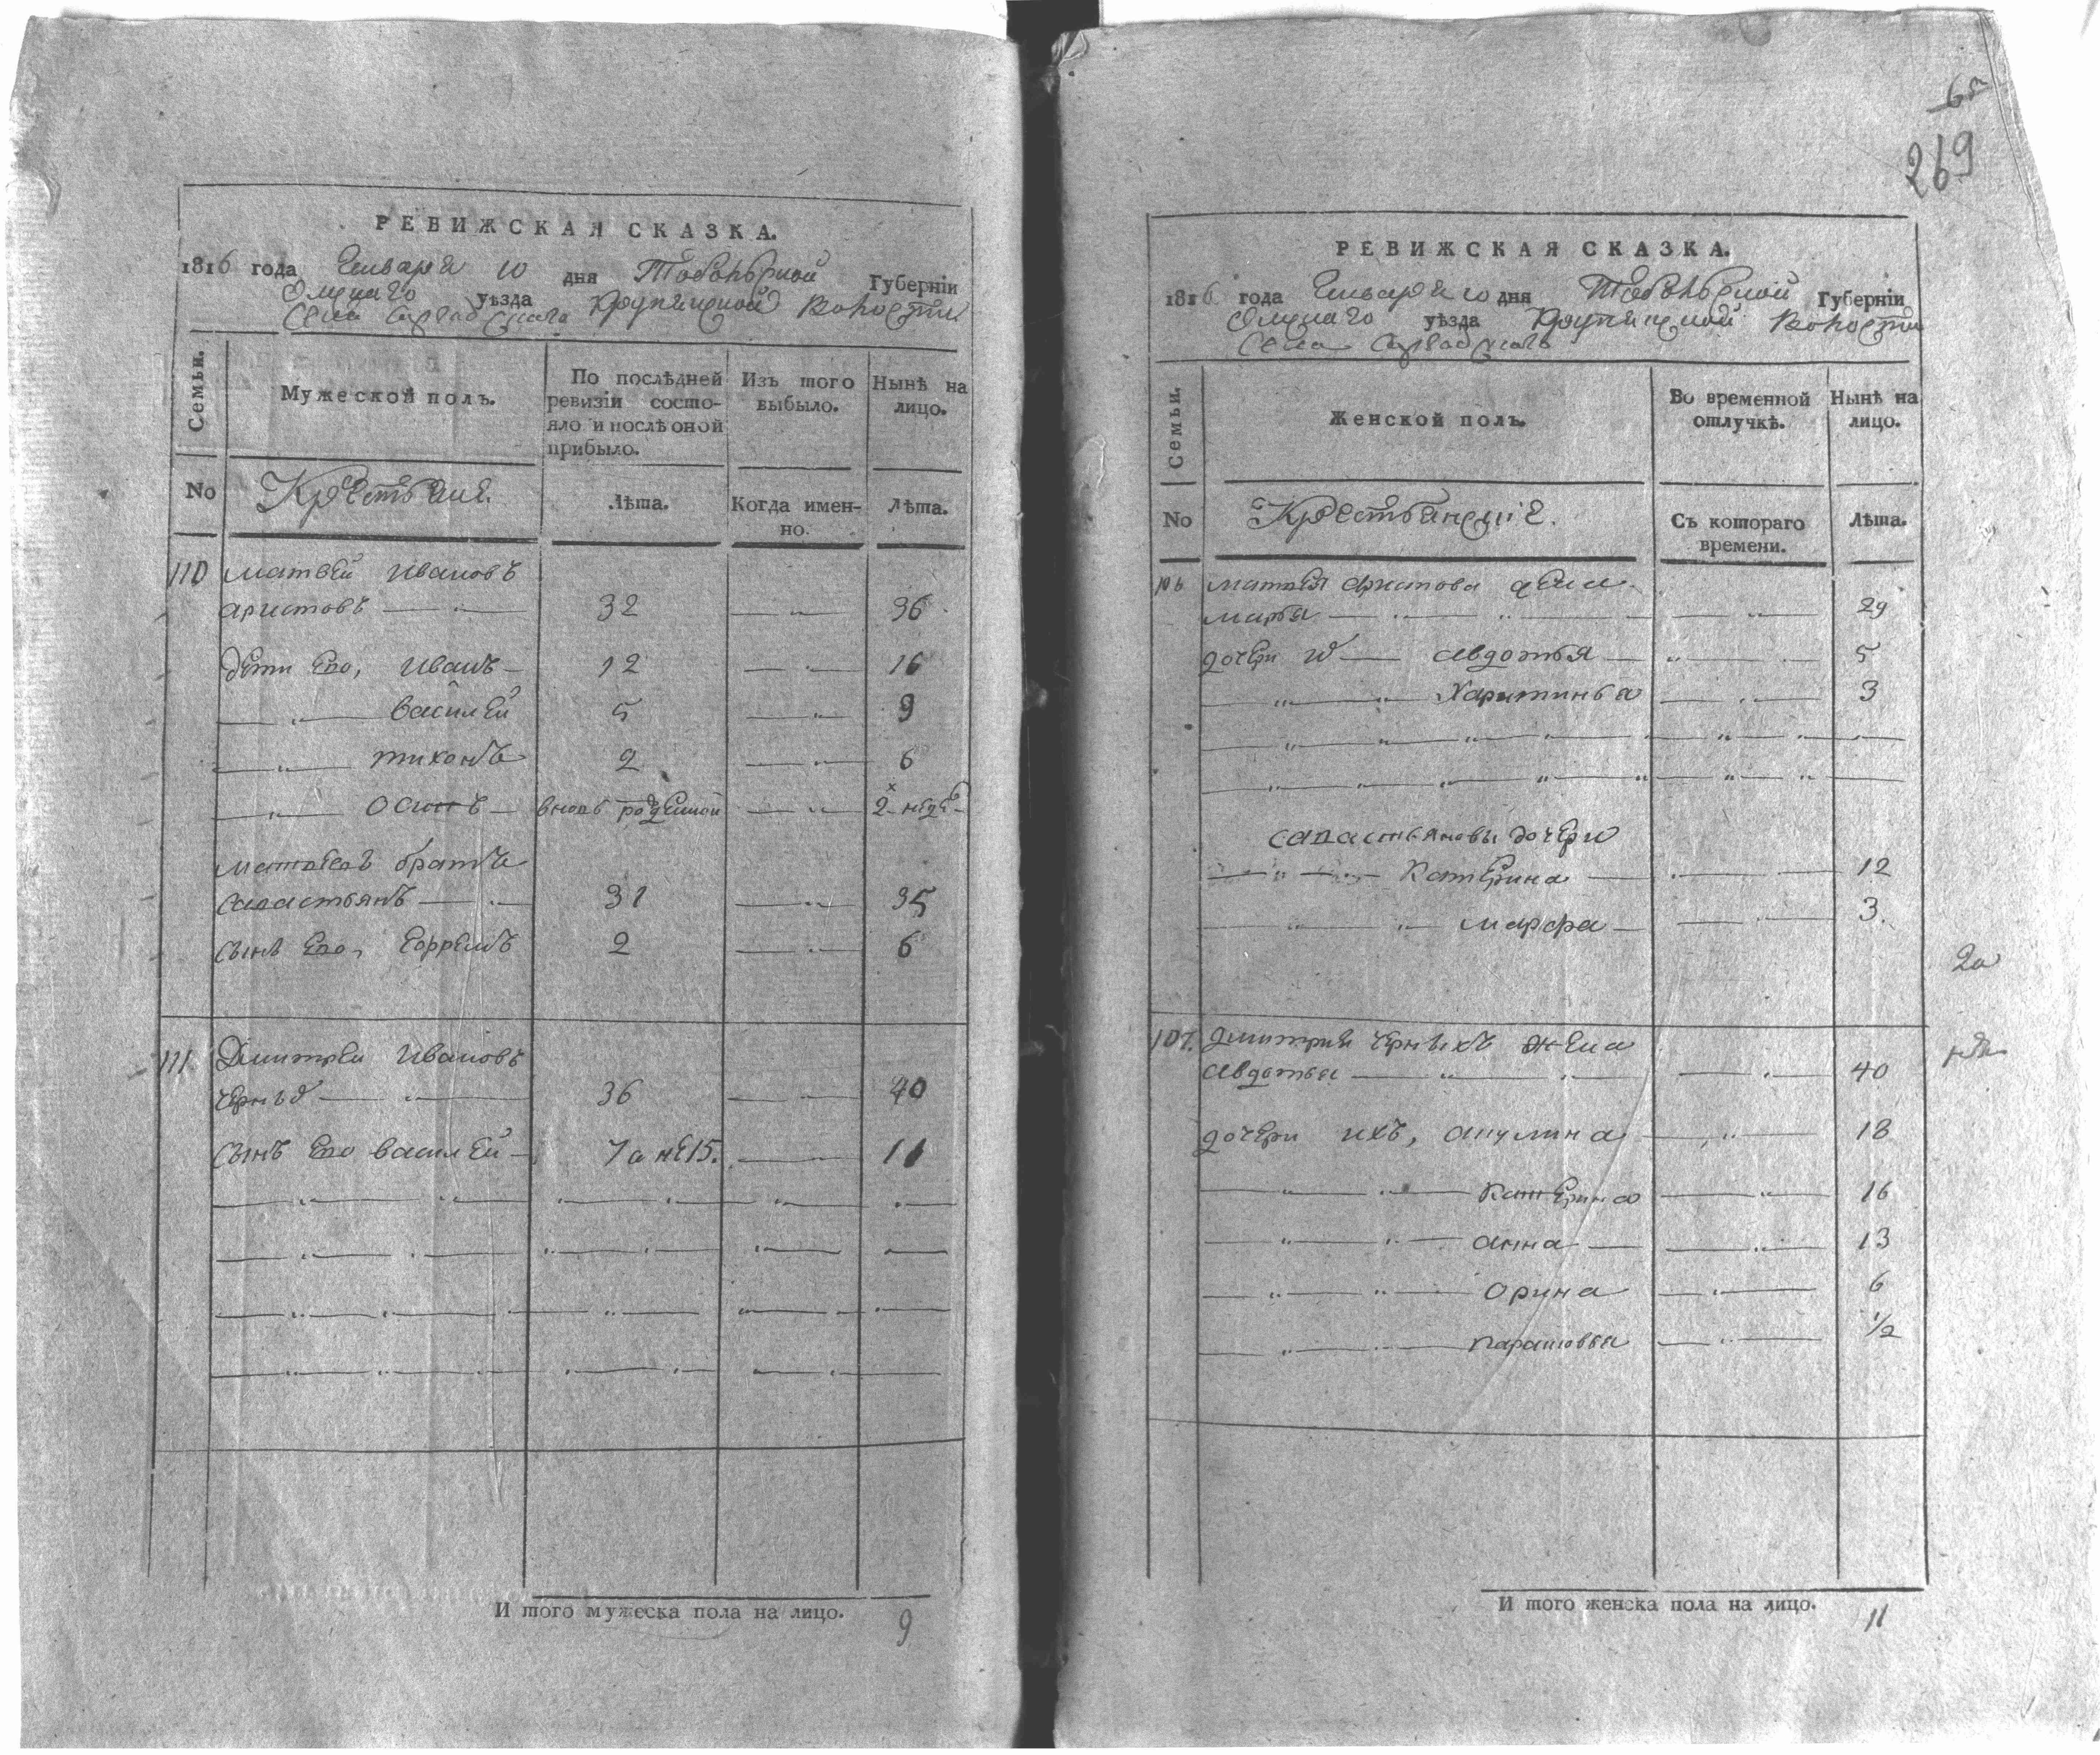 РЕВИЖСКАЯ СКАЗКА.
1816 года Генваря 10 дня Тобольской Губерніи
Омскаго уѣзда Крупянской Волости
Села
Семьи.
Мужеской полъ.
По послѣдней ревизіи состо-
яло и послѣ оной
прибыло.
Изъ того
выбыло.
Нынѣ на
лицо.
No
Крестьяне.
Лѣта.
Когда имен-
но.
Лѣта.
110 матвей Ивановъ
аристовъ 32 36
дети Ево, Иванъ 12 16
василей 5 9
тихонъ 2 6
осипъ вновь рожденной 2 недѣ
матвеевъ братъ
савастьянъ 31 35
сынъ Ево, Ефремъ 2 6
111 Дмитрей Ивановъ
черных 36 40
сынъ Ево василей 7 а не 15. 11
И того мужеска пола на лицо. 9
65
269
РЕВИЖСКАЯ СКАЗКА.
1816 года Генваря 10 дня Тобольской Губерніи
Омскаго уѣзда Крупянской Волости
Села
Семьи.
Женской полъ.
Во временной
отлучкѣ.
Нынѣ на
лицо.
No
Крестьянскіе.
Съ котораго
времени.
Лѣта.
106 матвея аристова жена
марья 29
дочери их авдотья 5
Харитинья 3
савастьяновы дочери
катерина 12
марфа 3.
107. дмитрия черныхъ жена
авдотья 40
дочери ихъ, акулина 18
катерина 16
анна 13
орина 6
парасковья 1/2
И того женска пола на лицо. 11